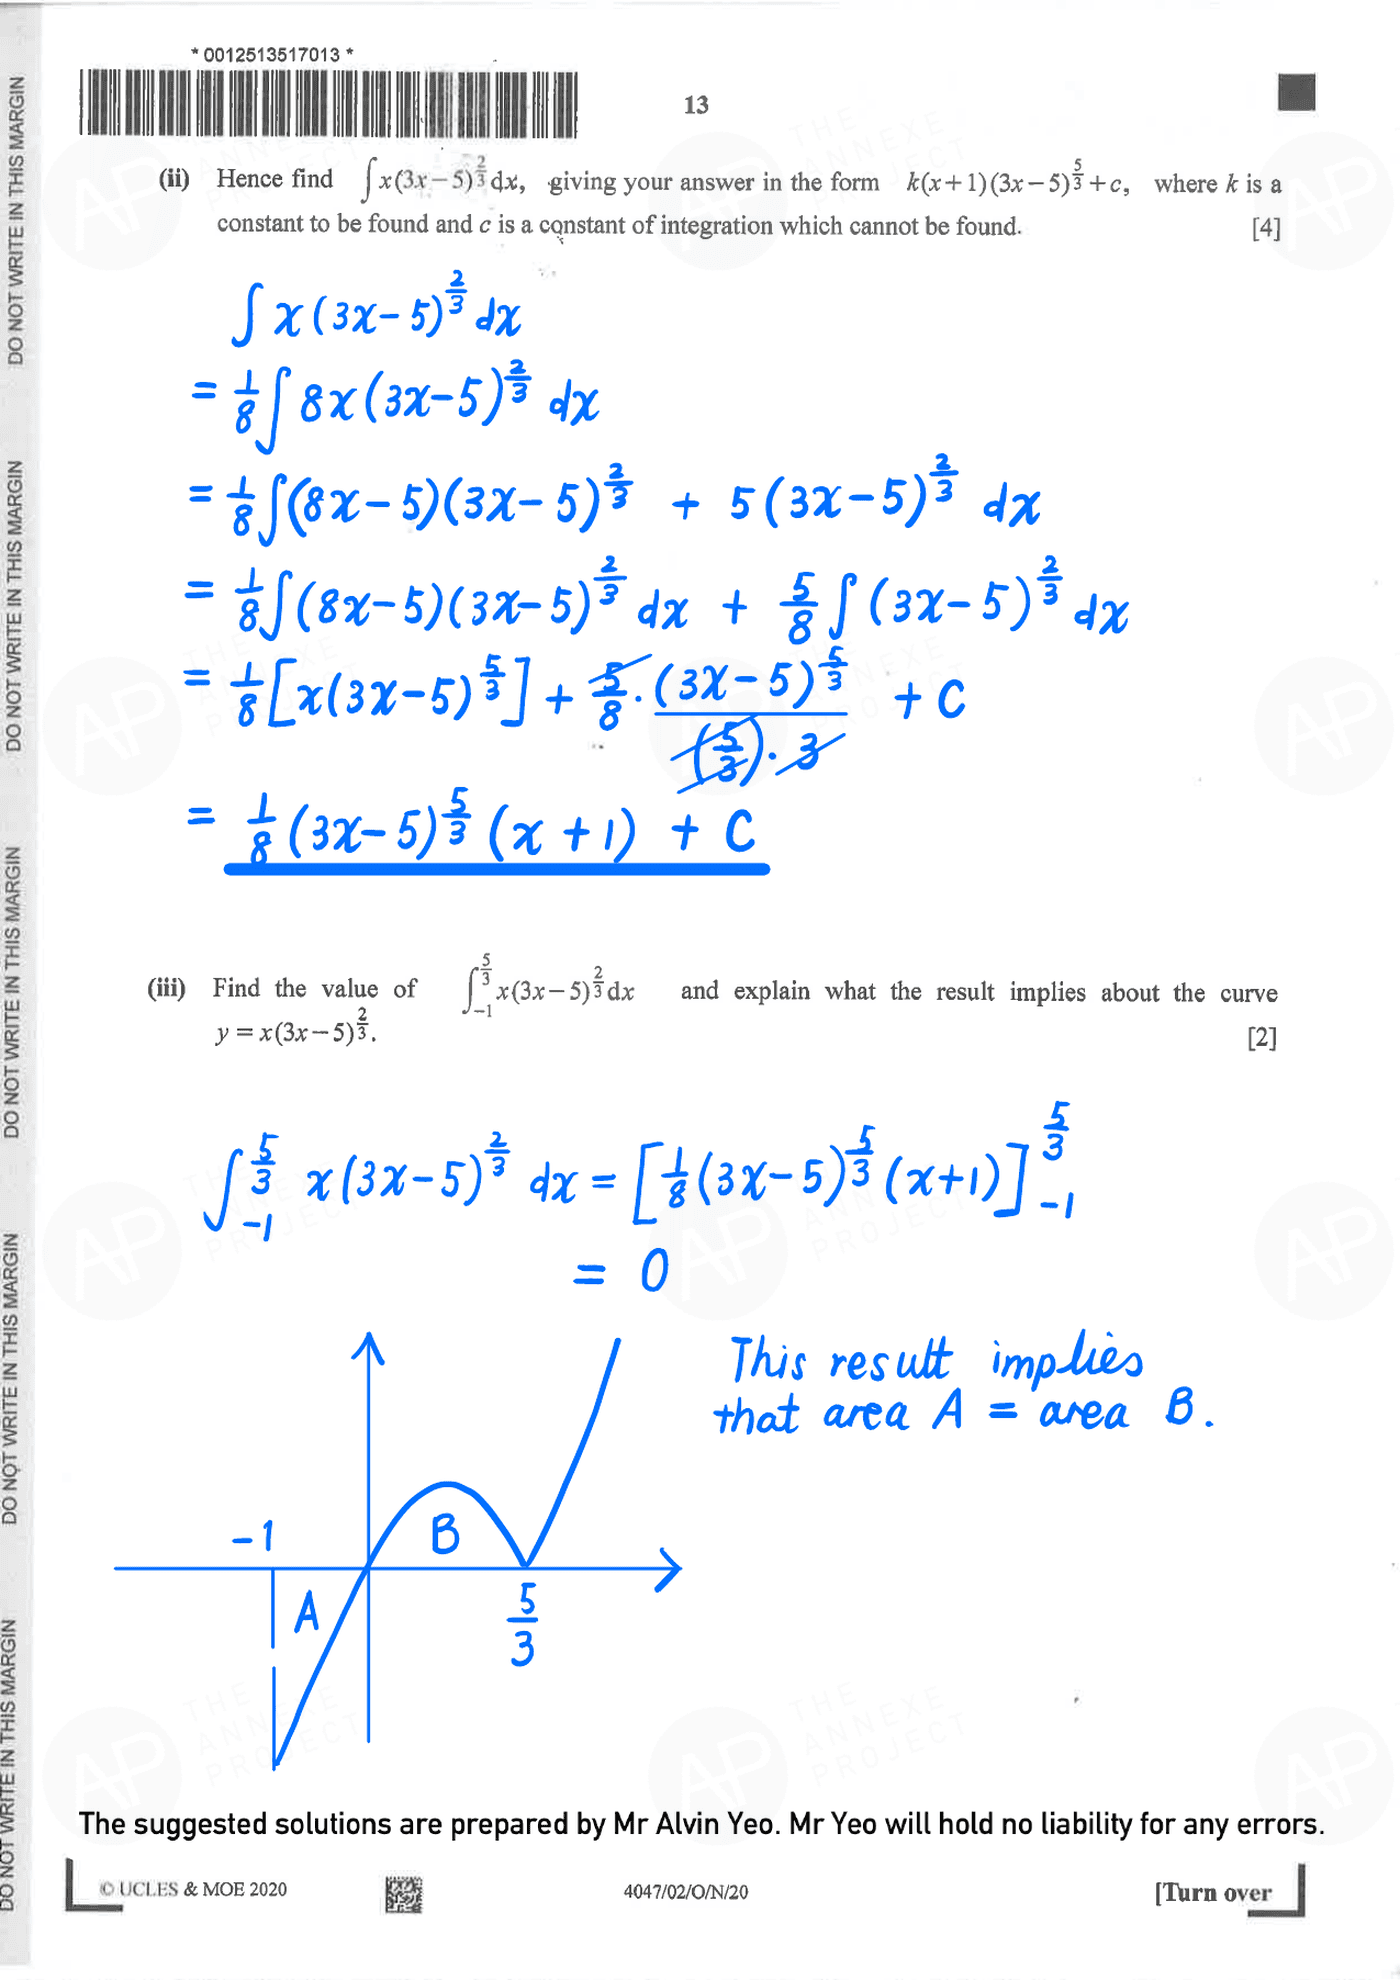 * 0012513517013 *
13
(ii) Hence find ∫ x(3x − 5)^(2/3) dx, giving your answer in the form k(x + 1)(3x − 5)^(5/3) + c, where k is a
constant to be found and c is a constant of integration which cannot be found. [4]
∫ x(3x − 5)^(2/3) dx
= 1/8 ∫ 8x(3x − 5)^(2/3) dx
= 1/8 ∫ (8x − 5)(3x − 5)^(2/3) + 5(3x − 5)^(2/3) dx
= 1/8 ∫ (8x − 5)(3x − 5)^(2/3) dx + 5/8 ∫ (3x − 5)^(2/3) dx
= 1/8 [x(3x − 5)^(5/3)] + 5/8 · (3x − 5)^(5/3) / ((5/3) · 3) + C
= 1/8 (3x − 5)^(5/3) (x + 1) + C
(iii) Find the value of ∫_{−1}^{5/3} x(3x − 5)^(2/3) dx and explain what the result implies about the curve
y = x(3x − 5)^(2/3). [2]
∫_{−1}^{5/3} x(3x − 5)^(2/3) dx = [1/8 (3x − 5)^(5/3) (x + 1)]_{−1}^{5/3}
= 0
This result implies
that area A = area B.
−1
B
A
5/3
The suggested solutions are prepared by Mr Alvin Yeo. Mr Yeo will hold no liability for any errors.
© UCLES & MOE 2020
4047/02/O/N/20
[Turn over
DO NOT WRITE IN THIS MARGIN
DO NOT WRITE IN THIS MARGIN
DO NOT WRITE IN THIS MARGIN
DO NOT WRITE IN THIS MARGIN
DO NOT WRITE IN THIS MARGIN
AP
THE
ANNEXE
PROJECT